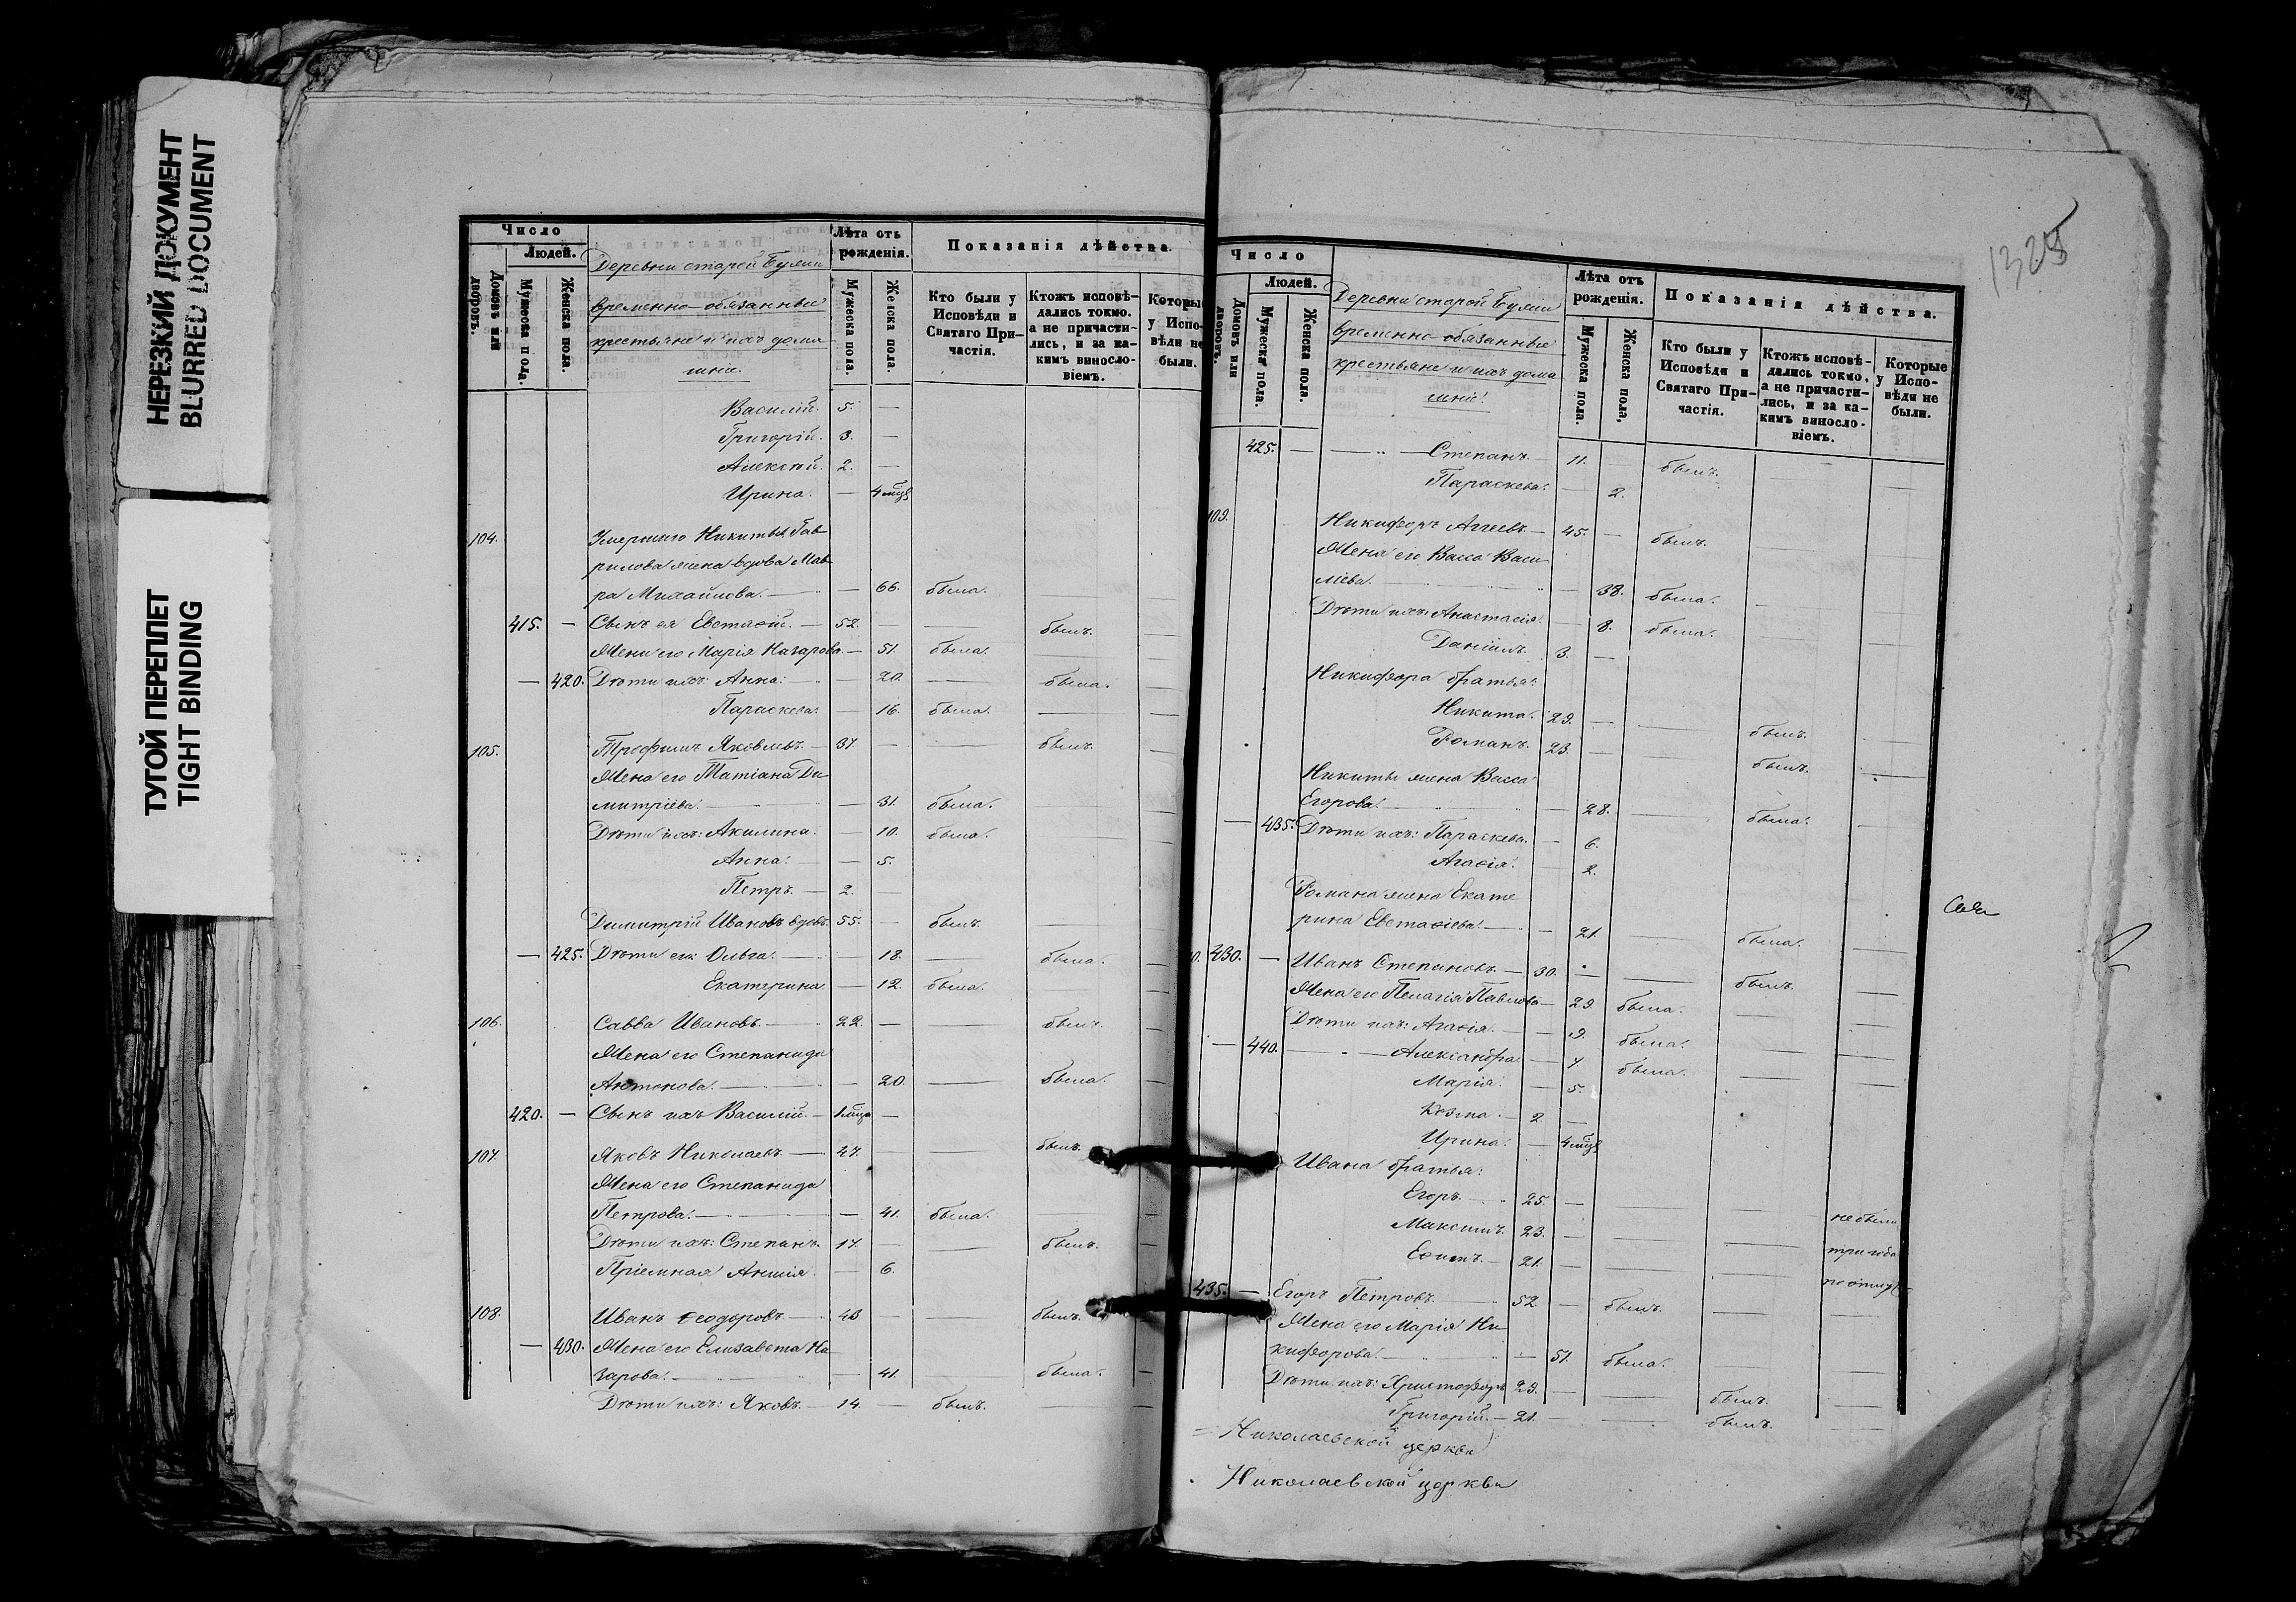 НЕРЕЗКИЙ ДОКУМЕНТ
BLURRED DOCUMENT
ТУГОЙ ПЕРЕПЛЕТ
TIGHT BINDING
Число
Людей.
Домовъ или дворовъ.
Мужеска пола.
Женска пола.
Деревни старой
временно-обязанные
крестьяне и ихъ домаш-
ніе.
Лѣта отъ рожденія.
Мужеска пола.
Женска пола.
Показанія дѣйства.
Кто были у Исповѣди и Святаго Причастія.
Ктожъ исповѣдались токмо, а не причастились, и за какимъ винословіемъ.
Которые у Исповѣди не были.
Василій. 5. —
Григорій. 3. —
Алексѣй. 2. —
Ирина. — 4 мц
104. Умершаго Никиты Гав-
рилова жена вдова Мав-
ра Михайлова. — 66. была.
415. — Сынъ ея Евстафій. — 52. — — былъ.
Жена его Марія Назарова — 51. была.
— 420. Дѣти ихъ: Анна. — 20. — была.
Параскева. — 16. была. —
105. Трофимъ Яковлевъ. — 37. — — былъ.
Жена его Татіана Ди-
митріева. — — 31. была.
Дѣти ихъ: Акилина. — 10. была.
Анна. — — 5.
Петръ. — 2. —
Димитрій Ивановъ вдовъ. 55. — былъ. —
— 425. Дѣти его: Ольга. — — 18. — была.
Екатерина — 12. была. —
106. Савва Ивановъ. — 22. — — былъ.
Жена его Степанида
Антонова. — — 20. — была.
420. — Сынъ ихъ Василій. — 1 мца —
107. Яковъ Николаевъ. — 47. — — былъ.
Жена его Степанида
Петрова. — — 41. была.
Дѣти ихъ: Степанъ. 17. — — былъ.
Пріемная — 6.
108. Иванъ Ѳеодоровъ. — 43 — — былъ.
— 430. Жена его Елизавета На-
зарова. — — 41. была.
Дѣти ихъ: Яковъ. — 14. — былъ.
1305
Число
Людей.
Домовъ или дворовъ.
Мужеска пола.
Женска пола.
Деревни старой
временно-обязанные
крестьяне и ихъ домаш-
ніе.
Лѣта отъ рожденія.
Мужеска пола.
Женска пола.
Показанія дѣйства.
Кто были у Исповѣди и Святаго Причастія.
Ктожъ исповѣдались токмо, а не причастились, и за какимъ винословіемъ.
Которые у Исповѣди не были.
425. — — Степанъ. — 11. — былъ. — —
Параскева. — 2.
109. Никифоръ Аггеевъ. — 45. — былъ. —
Жена его Васса Васи-
ліева. — — 38. была. —
Дѣти ихъ: Анастасія. — 8. была.
Даніилъ. 3. —
Никифора братья:
Никита. 29. — — былъ.
Романъ. 23. — — былъ. —
Никиты жена Васса
Егорова. — — 28. — была. —
— 435. Дѣти ихъ: Параскева. — 6.
Агафія. — 2.
Романа жена Екате-
рина Евстафіева. — — 21. — была. —
430. — Иванъ Степановъ. — 30. — — былъ. —
Жена его Пелагія Павлова — 29. была. —
Дѣти ихъ: Агафія. — — 9. была. — —
— 440. — Александра. — 7. была. — —
Марія. — 5.
Козма. — 2. —
Ирина. — 4 мц
Ивана братья:
Егоръ. 25. — не были
Максимъ. 23. — — три года
Ефимъ. 21. — — по отлуч
435. — Егоръ Петровъ. — 52. — былъ. — —
Жена его Марія Ни-
кифорова. — — 51. была. —
Дѣти ихъ: Христофоръ 29. — — былъ. —
Григорій. — 21. — — былъ. —
Николаевской церкви
Николаевской церкви